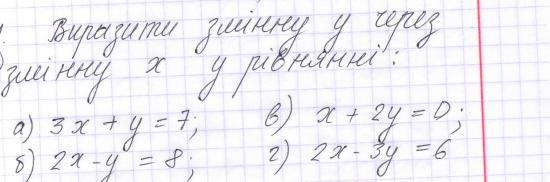 Виразити змінну y через
змінну x у рівнянні:
а) 3x + y = 7;   в) x + 2y = 0;
б) 2x - y = 8;   г) 2x - 3y = 6